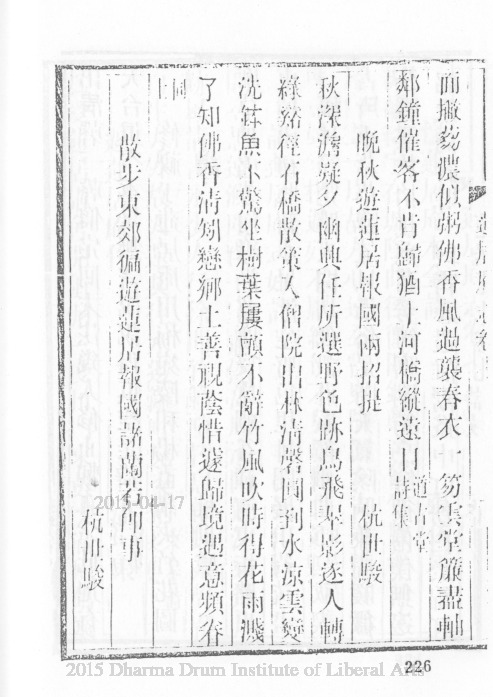 而撇茘濃似粥佛香風過襲春衣一笏雲堂簾盡軸
鄰鐘催客不肯歸猶上河橋縱遠目道古堂詩集
晚秋遊蓮居報國兩招提
杭世駿
秋深澹凝夕幽興任所選野色跡鳥飛羣影逐人轉
綠蹊徑石橋散策入僧院出林清磬圓到水涼雲變
洗鉢魚不驚坐樹葉屢顫不辭竹風吹時得花雨濺
了知佛香清匆戀鄉土善視蔭惜遽歸境遇意頻眷
同上
散步東郊徧遊蓮居報國諸蘭若即事
杭世駿
2015-04-17
226
2015 Dharma Drum Institute of Liberal Arts